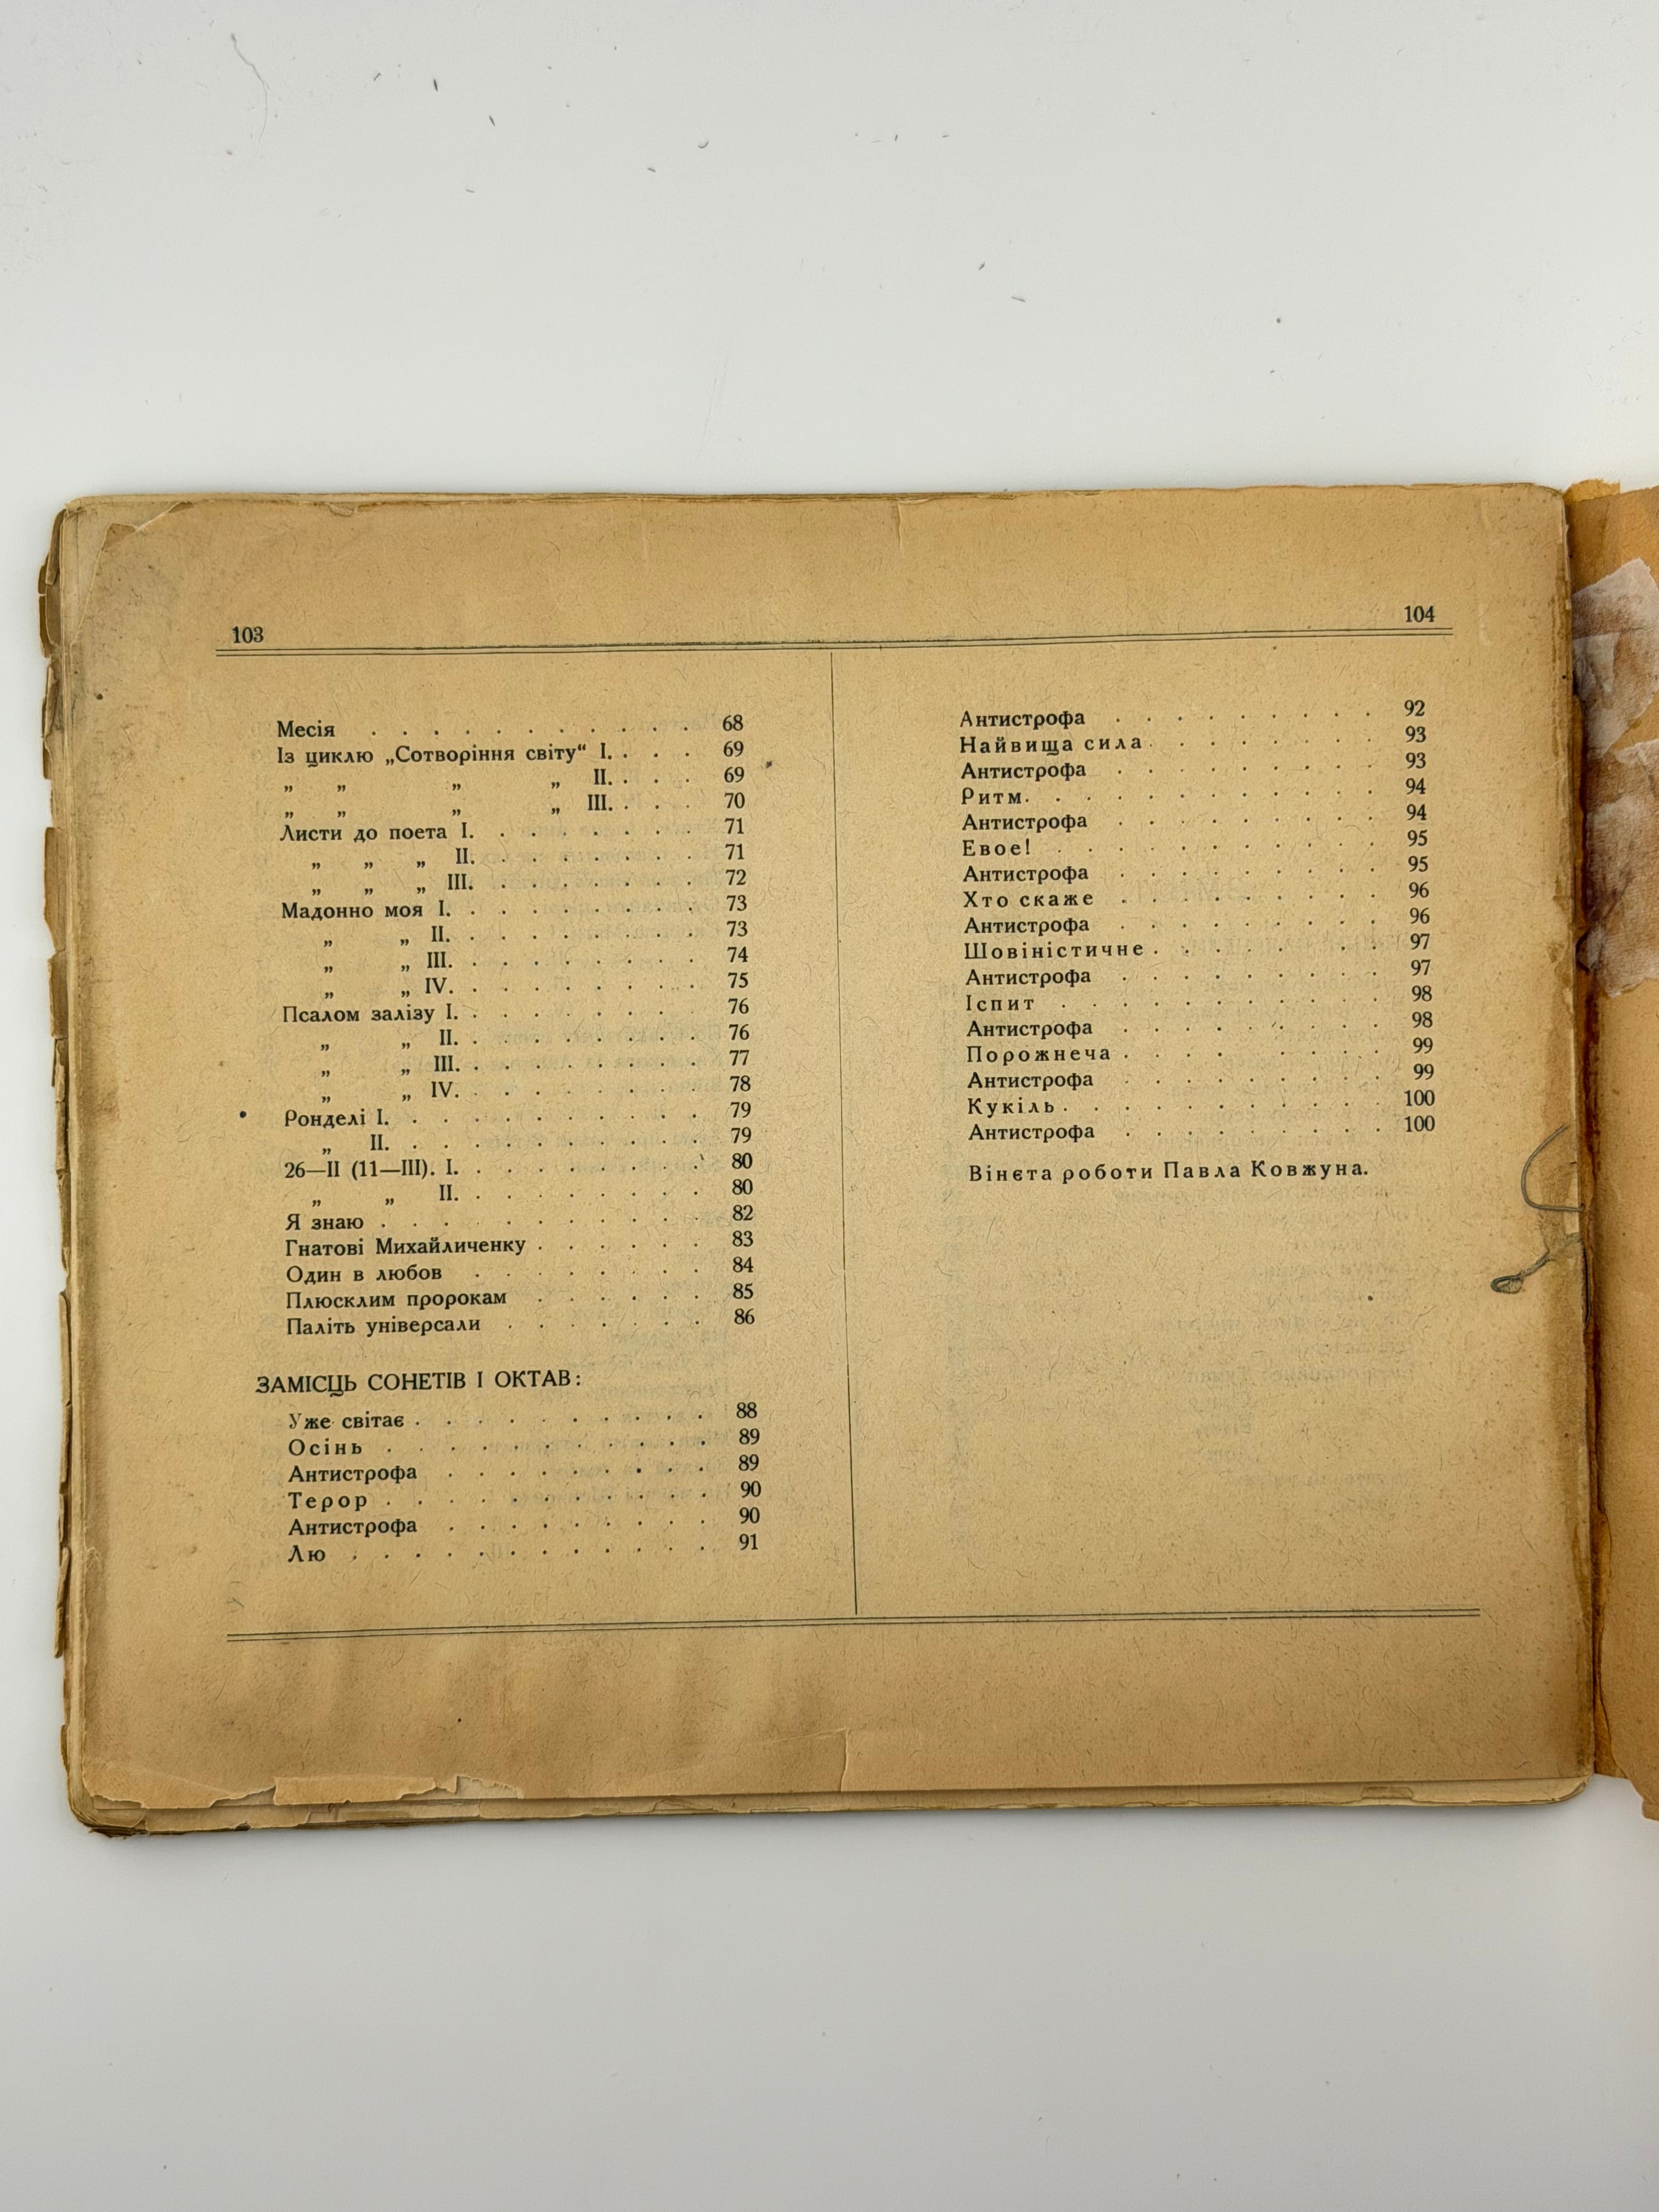 103
Месія . . . . . . . . . . . 68
Із циклю „Сотворіння світу“ I. . . . 69
„ „ „ „ II. . . . 69
„ „ „ „ III. . . . 70
Листи до поета I. . . . . . . . 71
„ „ „ II. . . . . . . . 71
„ „ „ III. . . . . . . . 72
Мадонно моя I. . . . . . . . . 73
„ „ II. . . . . . . . . 73
„ „ III. . . . . . . . . 74
„ „ IV. . . . . . . . . 75
Псалом залізу I. . . . . . . . 76
„ „ II. . . . . . . . . 76
„ „ III. . . . . . . . . 77
„ „ IV. . . . . . . . . 78
Ронделі I. . . . . . . . . . . 79
„ II. . . . . . . . . . . 79
26—II (11—III). I. . . . . . . . . 80
„ „ II. . . . . . . . . 80
Я знаю . . . . . . . . . . . 82
Гнатові Михайличенку . . . . . . 83
Один в любов . . . . . . . . 84
Плюсклим пророкам . . . . . . 85
Паліть універсали . . . . . . . 86
ЗАМІСЦЬ СОНЕТІВ І ОКТАВ:
Уже світає . . . . . . . . . . 88
Осінь . . . . . . . . . . . 89
Антистрофа . . . . . . . . . 89
Терор . . . . . . . . . . . 90
Антистрофа . . . . . . . . . 90
Лю . . . . . . . . . . . . 91
104
Антистрофа . . . . . . . . . 92
Найвища сила . . . . . . . . 93
Антистрофа . . . . . . . . . 93
Ритм. . . . . . . . . . . . 94
Антистрофа . . . . . . . . . 94
Евое! . . . . . . . . . . . 95
Антистрофа . . . . . . . . . 95
Хто скаже . . . . . . . . . 96
Антистрофа . . . . . . . . . 96
Шовіністичне . . . . . . . . 97
Антистрофа . . . . . . . . . 97
Іспит . . . . . . . . . . . 98
Антистрофа . . . . . . . . . 98
Порожнеча . . . . . . . . . 99
Антистрофа . . . . . . . . . 99
Кукіль . . . . . . . . . . . 100
Антистрофа . . . . . . . . . 100
Вінєта роботи Павла Ковжуна.